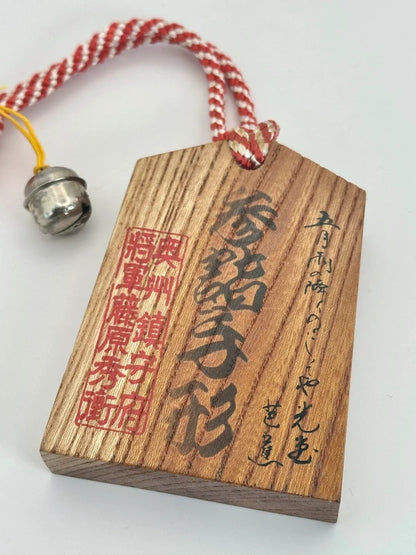 五月雨の降りのこしてや光堂
芭蕉
参詣手形
奥州鎮守府
将軍藤原秀衡